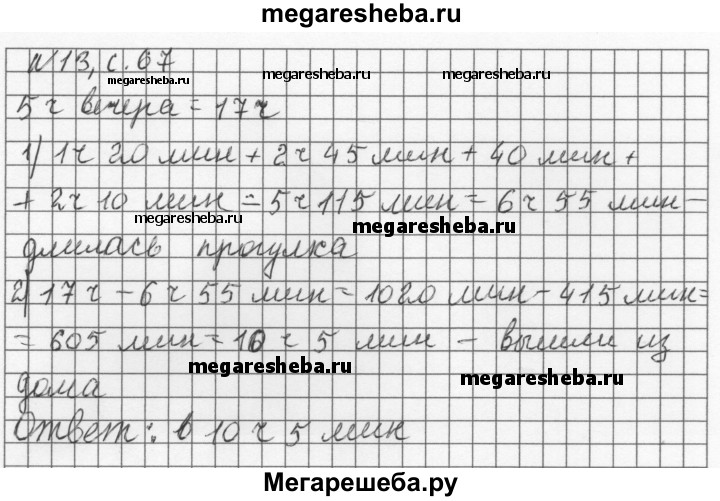 megaresheba.ru
N13, с. 67
megaresheba.ru megaresheba.ru megaresheba.ru
5 ч вечера = 17 ч
1) 1 ч 20 мин + 2 ч 45 мин + 40 мин +
+ 2 ч 10 мин = 5 ч 115 мин = 6 ч 55 мин –
megaresheba.ru megaresheba.ru
длилась прогулка
2) 17 ч – 6 ч 55 мин = 1020 мин – 415 мин =
= 605 мин = 10 ч 5 мин – вышли из
megaresheba.ru megaresheba.ru
дома
Ответ: в 10 ч 5 мин
Мегарешеба.ру